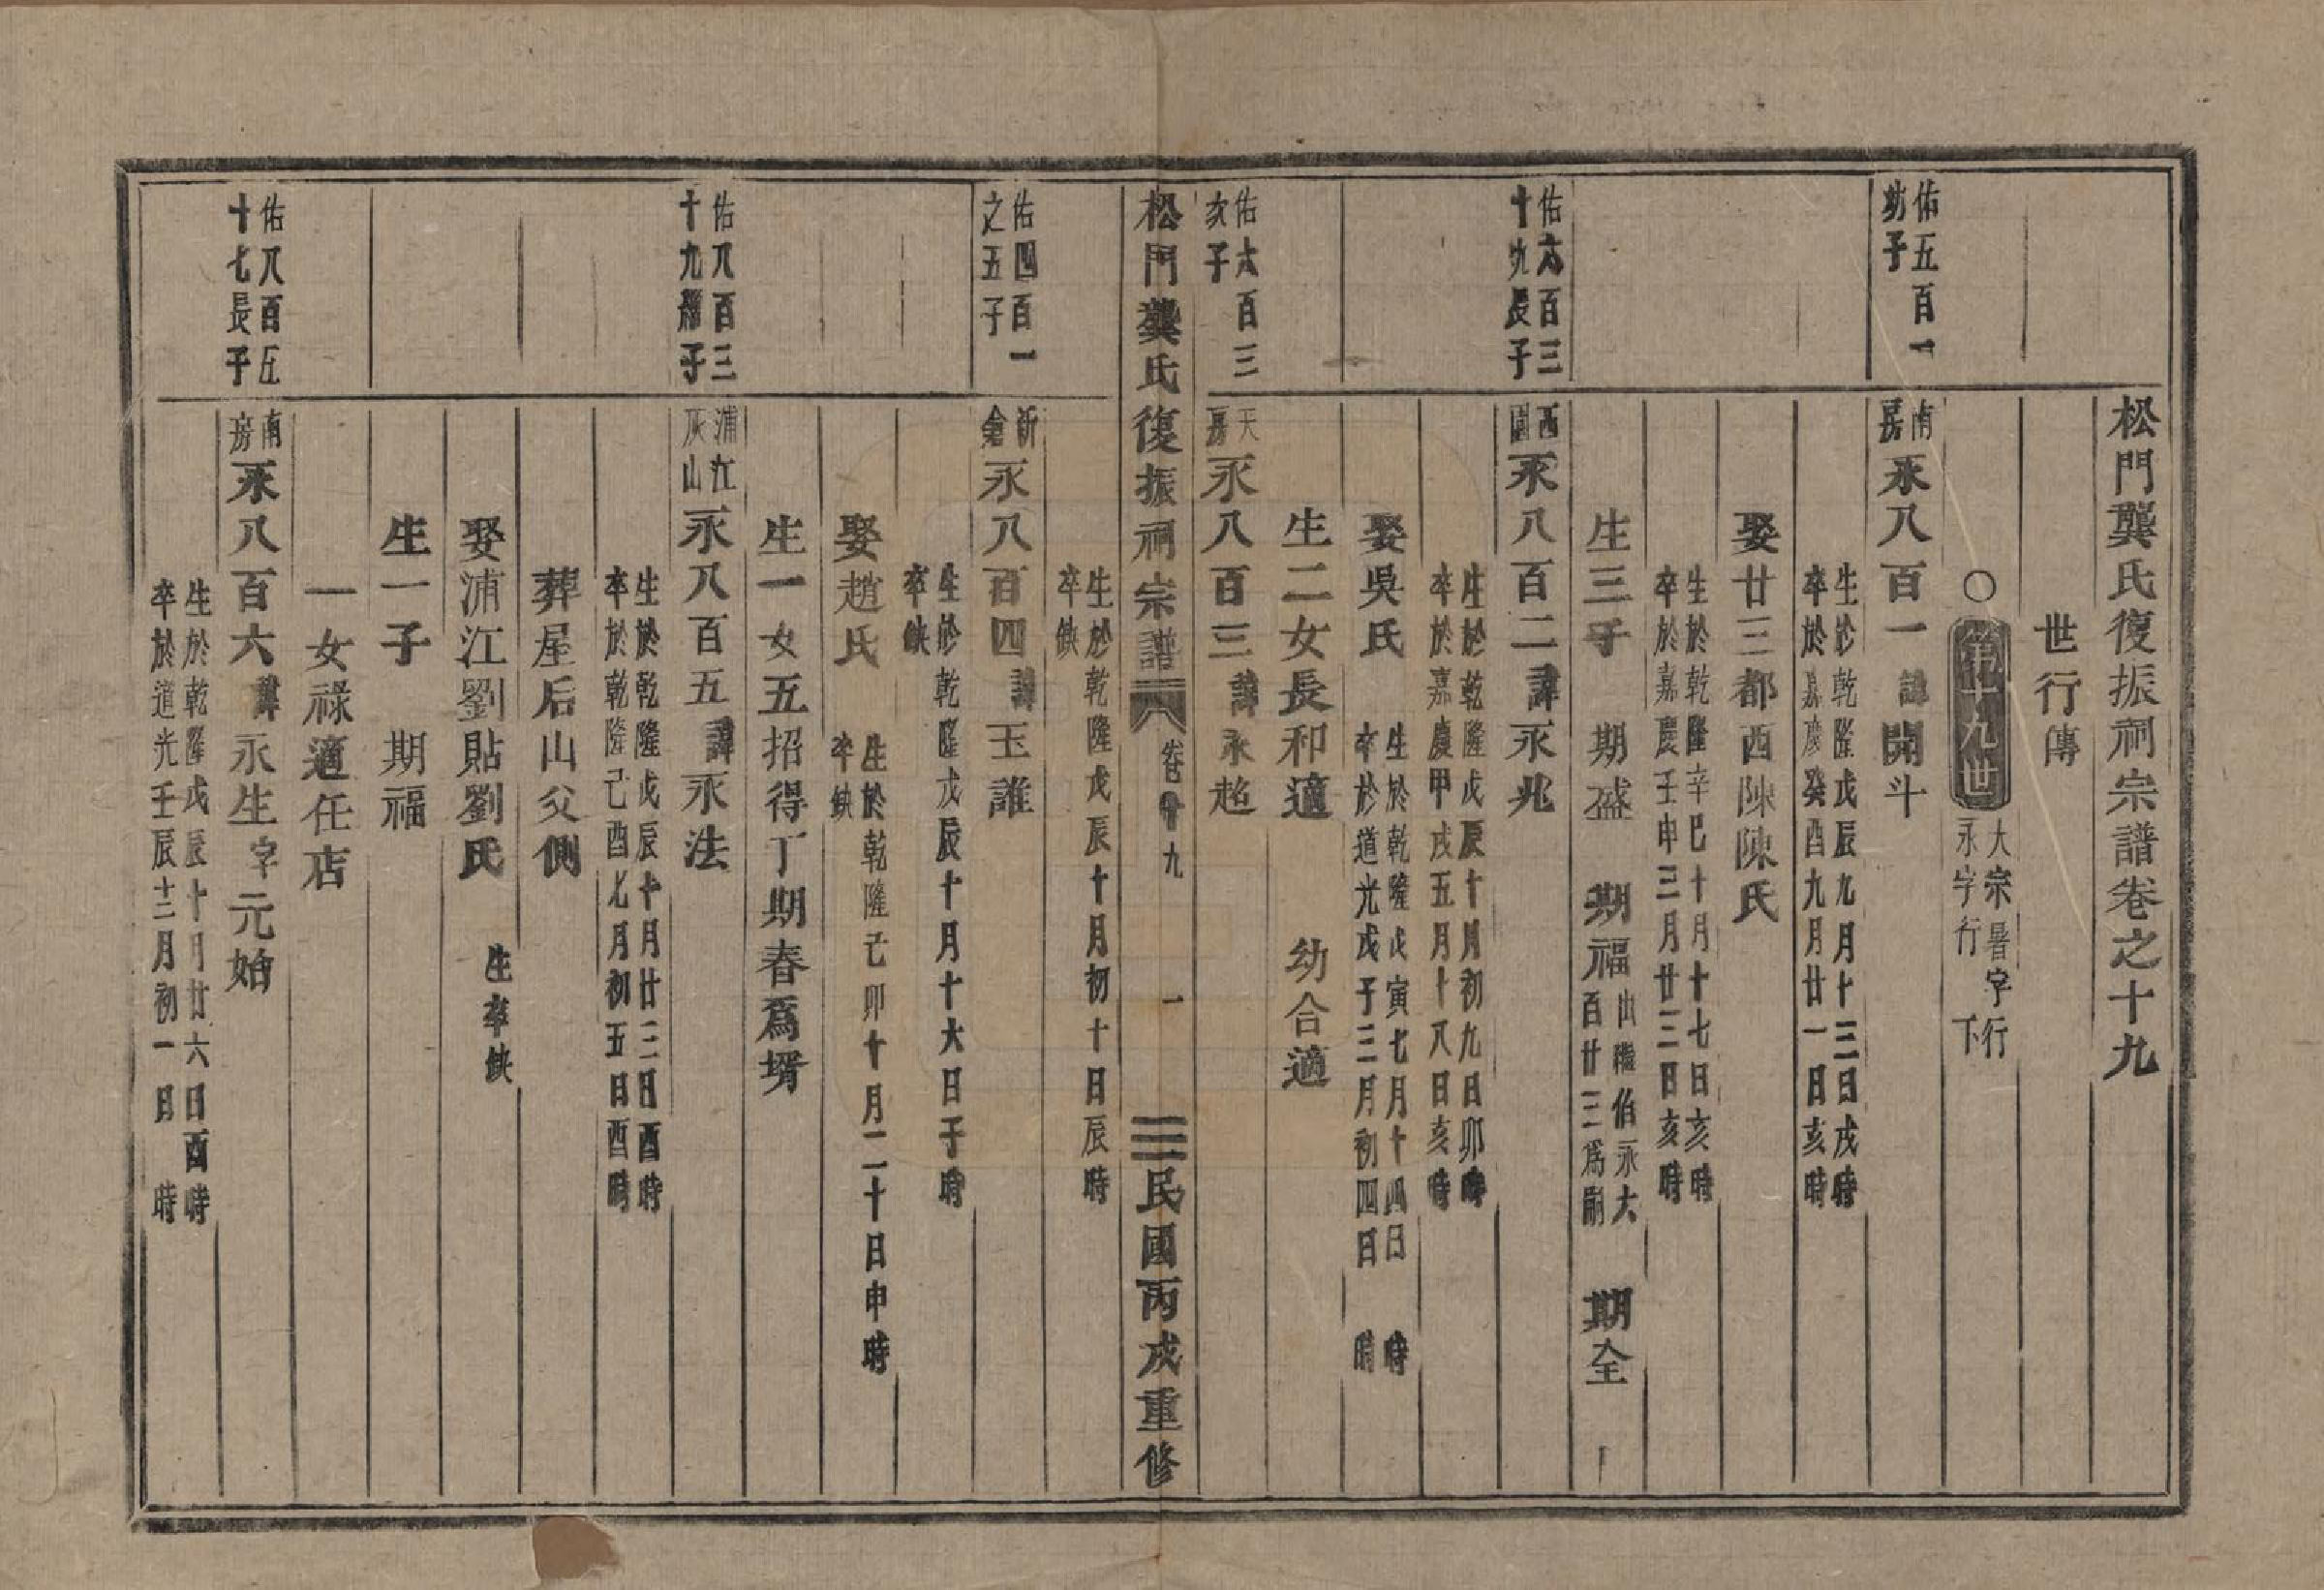 松門龔氏復振祠宗譜卷之十九
世行傳
○第十九世 大宗暑字行 永字行下
佑五百一幼子
南房永八百一諱開斗
生於乾隆戊辰九月十三日戌時
卒於嘉慶癸酉九月廿一日亥時
娶廿三都西陳陳氏
生於乾隆辛巳十月十七日亥時
卒於嘉慶壬申三月廿三日亥時
生三子 期盛 期福出繼伯永大百廿三爲嗣 期全
佑六百三十九長子
西園永八百二諱永兆
生於乾隆戊辰十月初九日卯時
卒於嘉慶甲戌五月十八日亥時
娶吳氏
生於乾隆戊寅七月十四日 時
卒於道光戊子三月初四日 時
生二女長和適 幼合適
佑六百三次子
天房永八百三諱永超
松門龔氏復振祠宗譜 卷十九 一 民國丙戌重修
生於乾隆戊辰十月初十日辰時
卒缺
佑四百一之五子
新倉永八百四諱玉誰
生於乾隆戊辰十月十六日子時
卒缺
娶趙氏
生於乾隆己卯十月二十日申時
卒缺
生一女五招得丁期春爲壻
佑八百三十九繼子
浦江灰山永八百五諱永法
生於乾隆戊辰十月廿二日酉時
卒於乾隆己酉七月初五日酉時
葬屋后山父側
娶浦江劉貼劉氏 生卒缺
生一子 期福
一女祿適任店
佑八百五十七長子
南房永八百六諱永生字元始
生於乾隆戊辰十月廿六日酉時
卒於道光壬辰十二月初一日 時